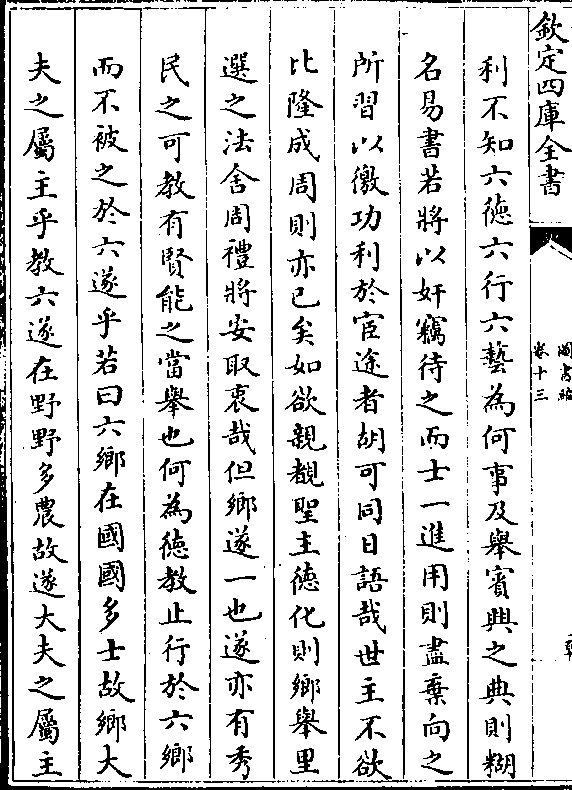 欽定四庫全書
圖書編
卷十三
利不知六德六行六藝為何事及舉賓興之典則糊
名易書若將以奸竊待之而士一進用則盡棄向之
所習以徼功利於宦途者胡可同日語哉世主不欲
比隆成周則亦已矣如欲親覩聖主德化則鄉舉里
選之法舍周禮將安取衷哉但鄉遂一也遂亦有秀
民之可教有賢能之當舉也何為德教止行於六鄉
而不被之於六遂乎若曰六鄉在國國多士故鄉大
夫之屬主乎教六遂在野野多農故遂大夫之屬主